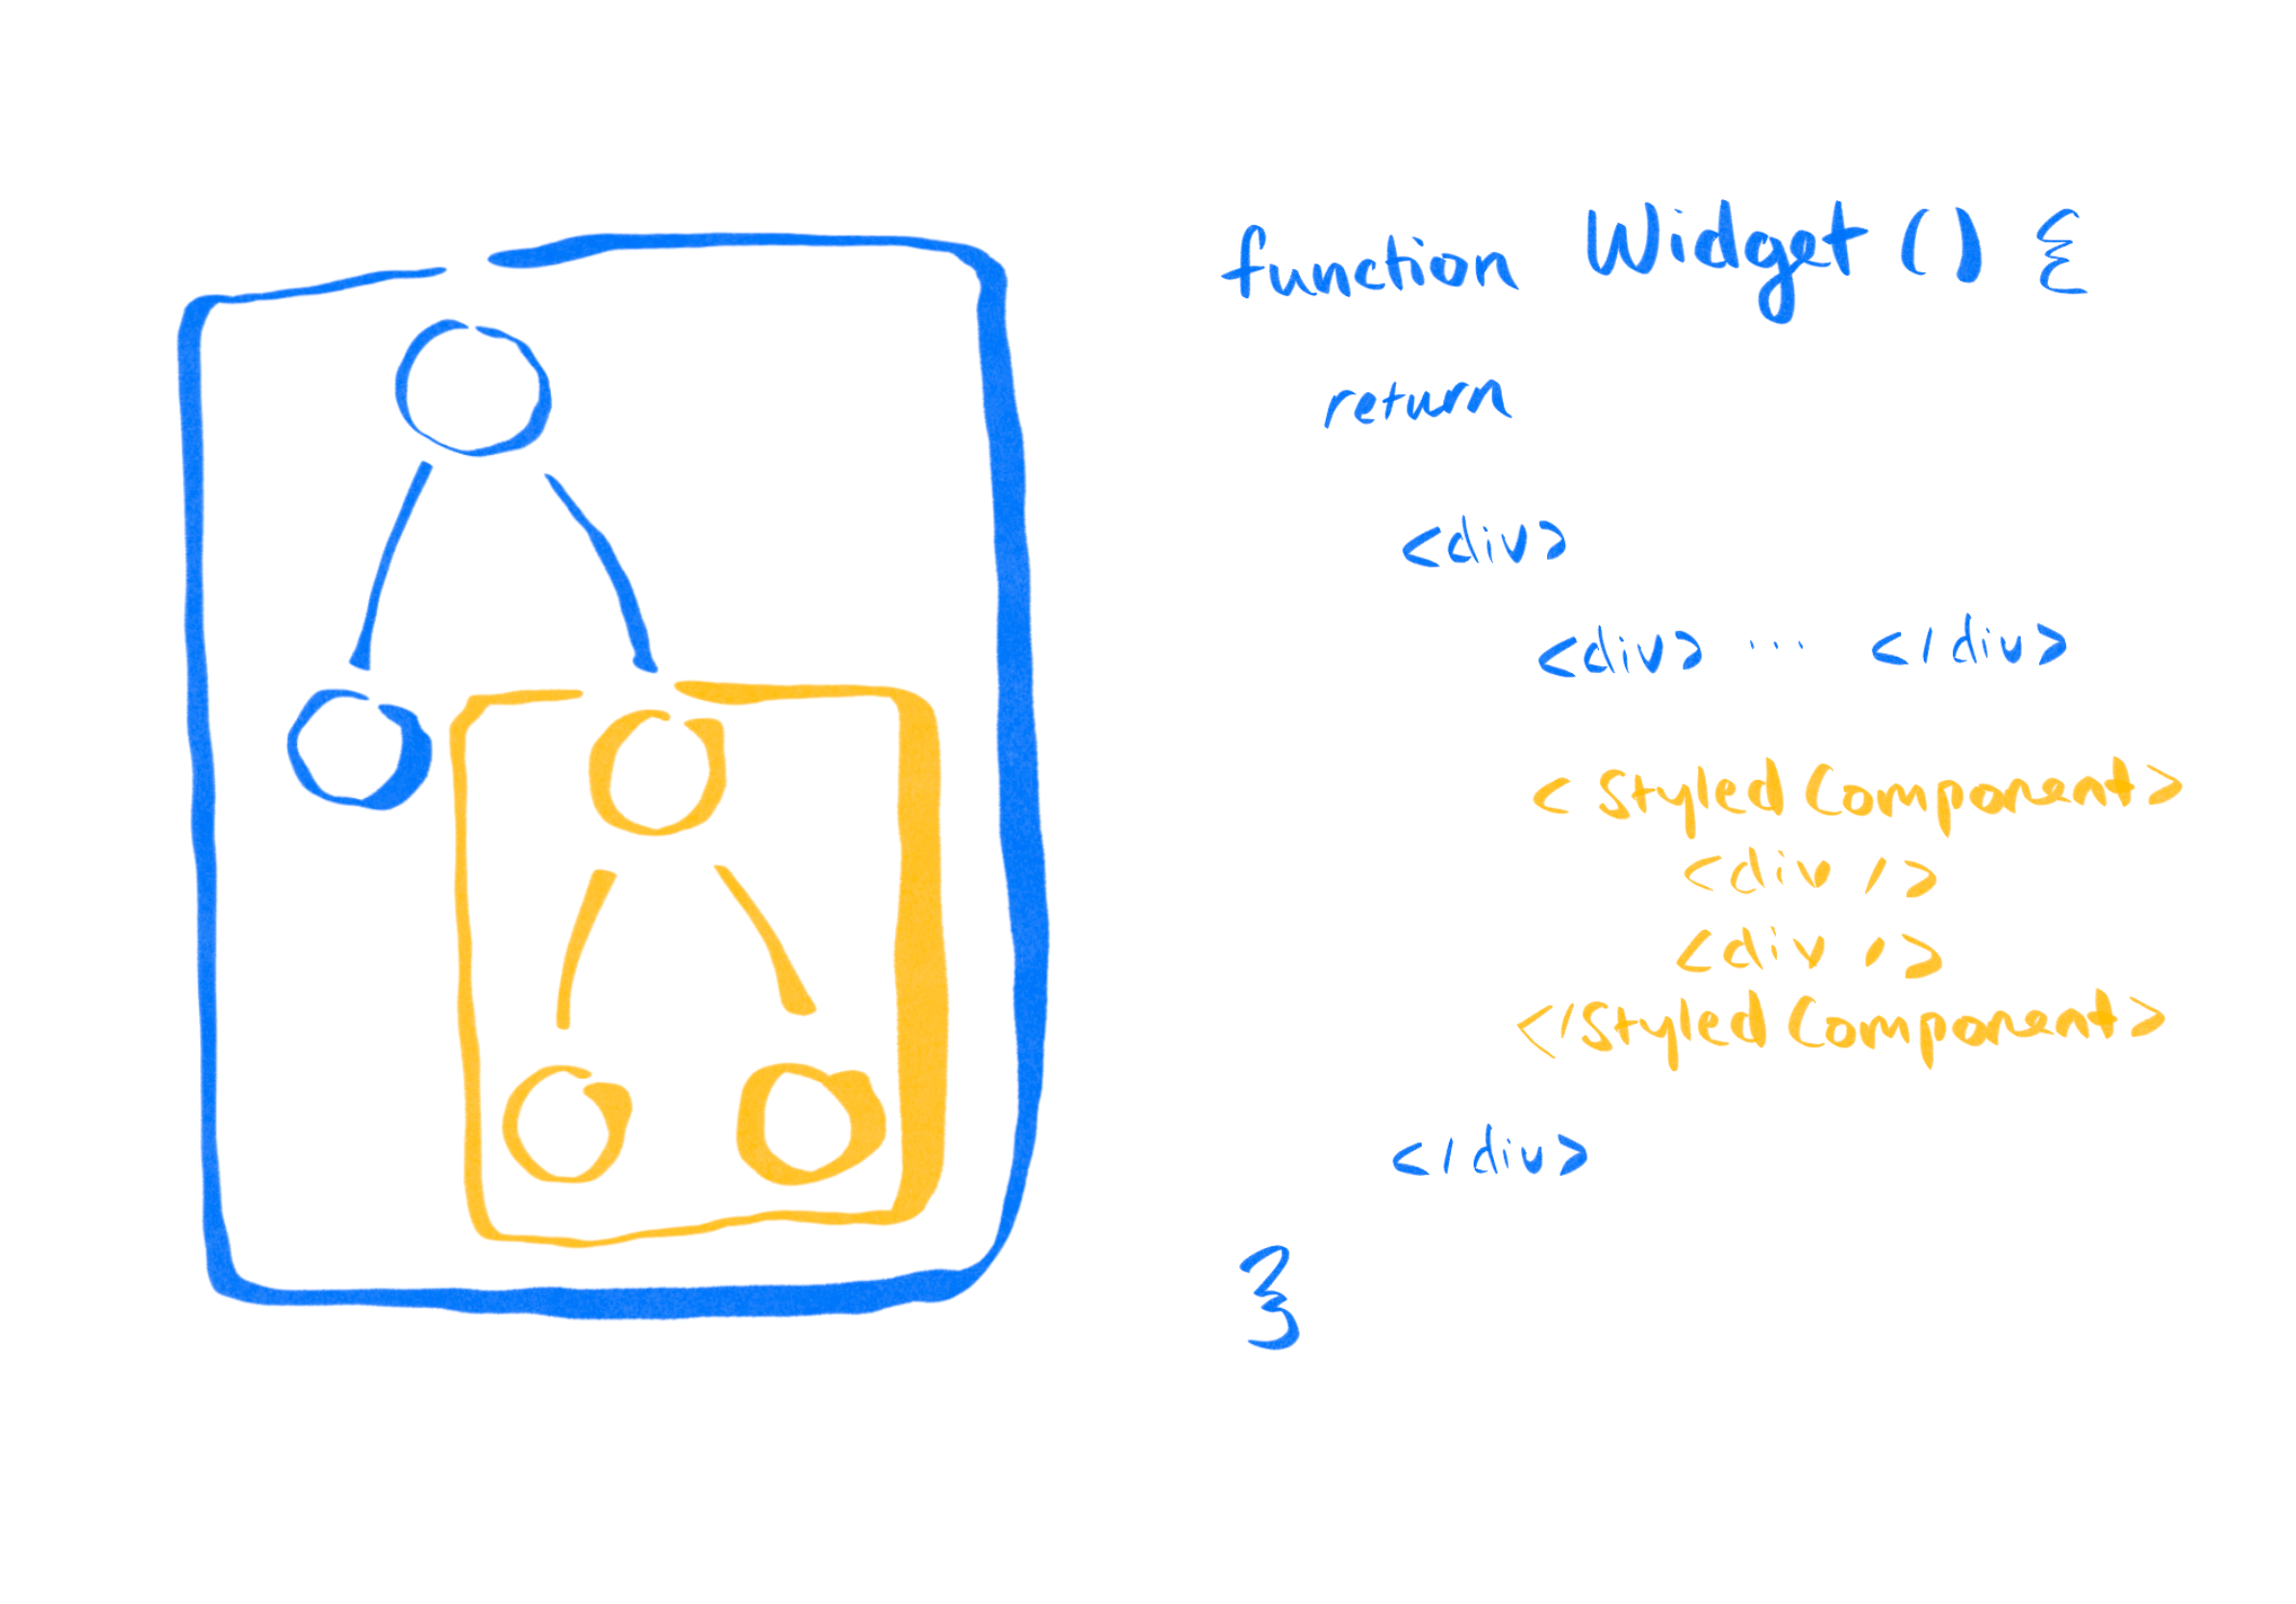 function Widget () {
return
<div>
<div> ... </div>
<Styled Component>
<div />
<div />
</Styled Component>
</div>
}